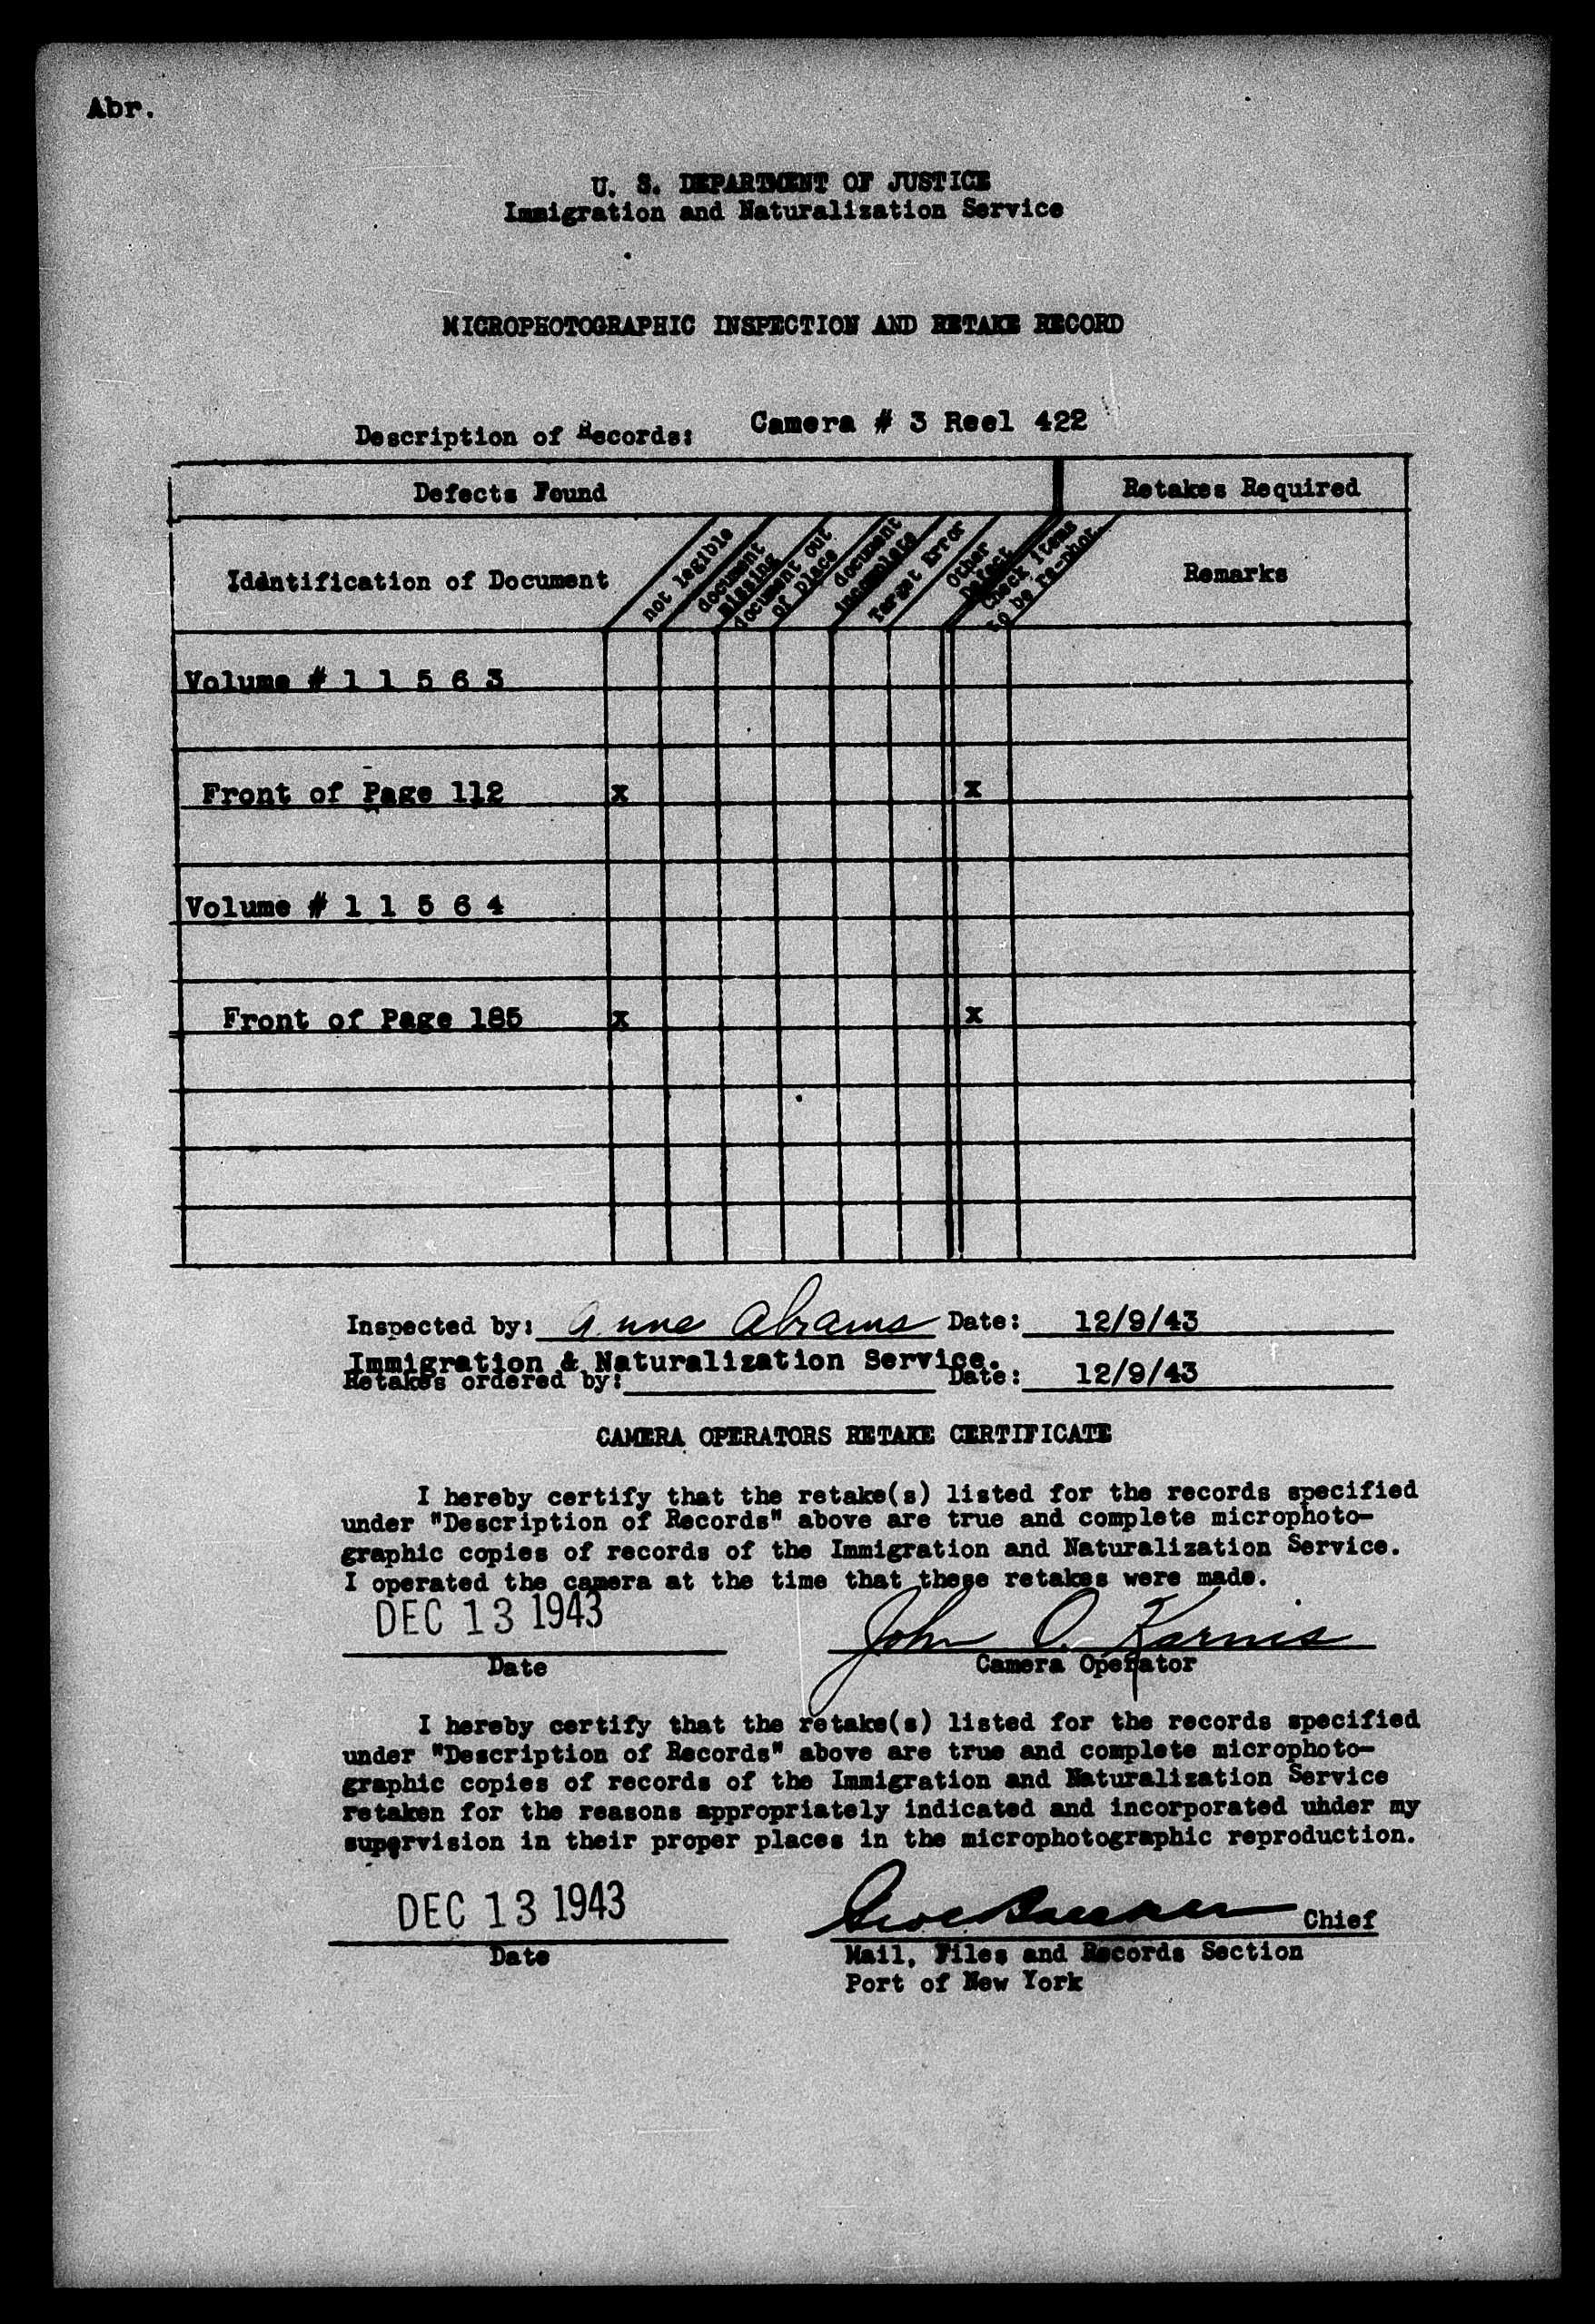 Abr.
U. S. DEPARTMENT OF JUSTICE
Immigration and Naturalization Service
MICROPHOTOGRAPHIC INSPECTION AND RETAKE RECORD
Description of Records: Camera # 3 Reel 422
Defects Found
Retakes Required
Identification of Document
not legible
document missing
document out of place
document incomplete
Target Error
Other Defect
Check Items to be re-phot.
Remarks
Volume # 1 1 5 6 3
Front of Page 112 x x
Volume # 1 1 5 6 4
Front of Page 185 x x
Inspected by: Anne Abrams Date: 12/9/43
Immigration & Naturalization Service.
Retakes ordered by: Date: 12/9/43
CAMERA OPERATORS RETAKE CERTIFICATE
I hereby certify that the retake(s) listed for the records specified
under "Description of Records" above are true and complete microphoto-
graphic copies of records of the Immigration and Naturalization Service.
I operated the camera at the time that these retakes were made.
DEC 13 1943 John O. Karnis
Date Camera Operator
I hereby certify that the retake(s) listed for the records specified
under "Description of Records" above are true and complete microphoto-
graphic copies of records of the Immigration and Naturalization Service
retaken for the reasons appropriately indicated and incorporated uhder my
supervision in their proper places in the microphotographic reproduction.
DEC 13 1943 Chief
Date Mail, Files and Records Section
Port of New York